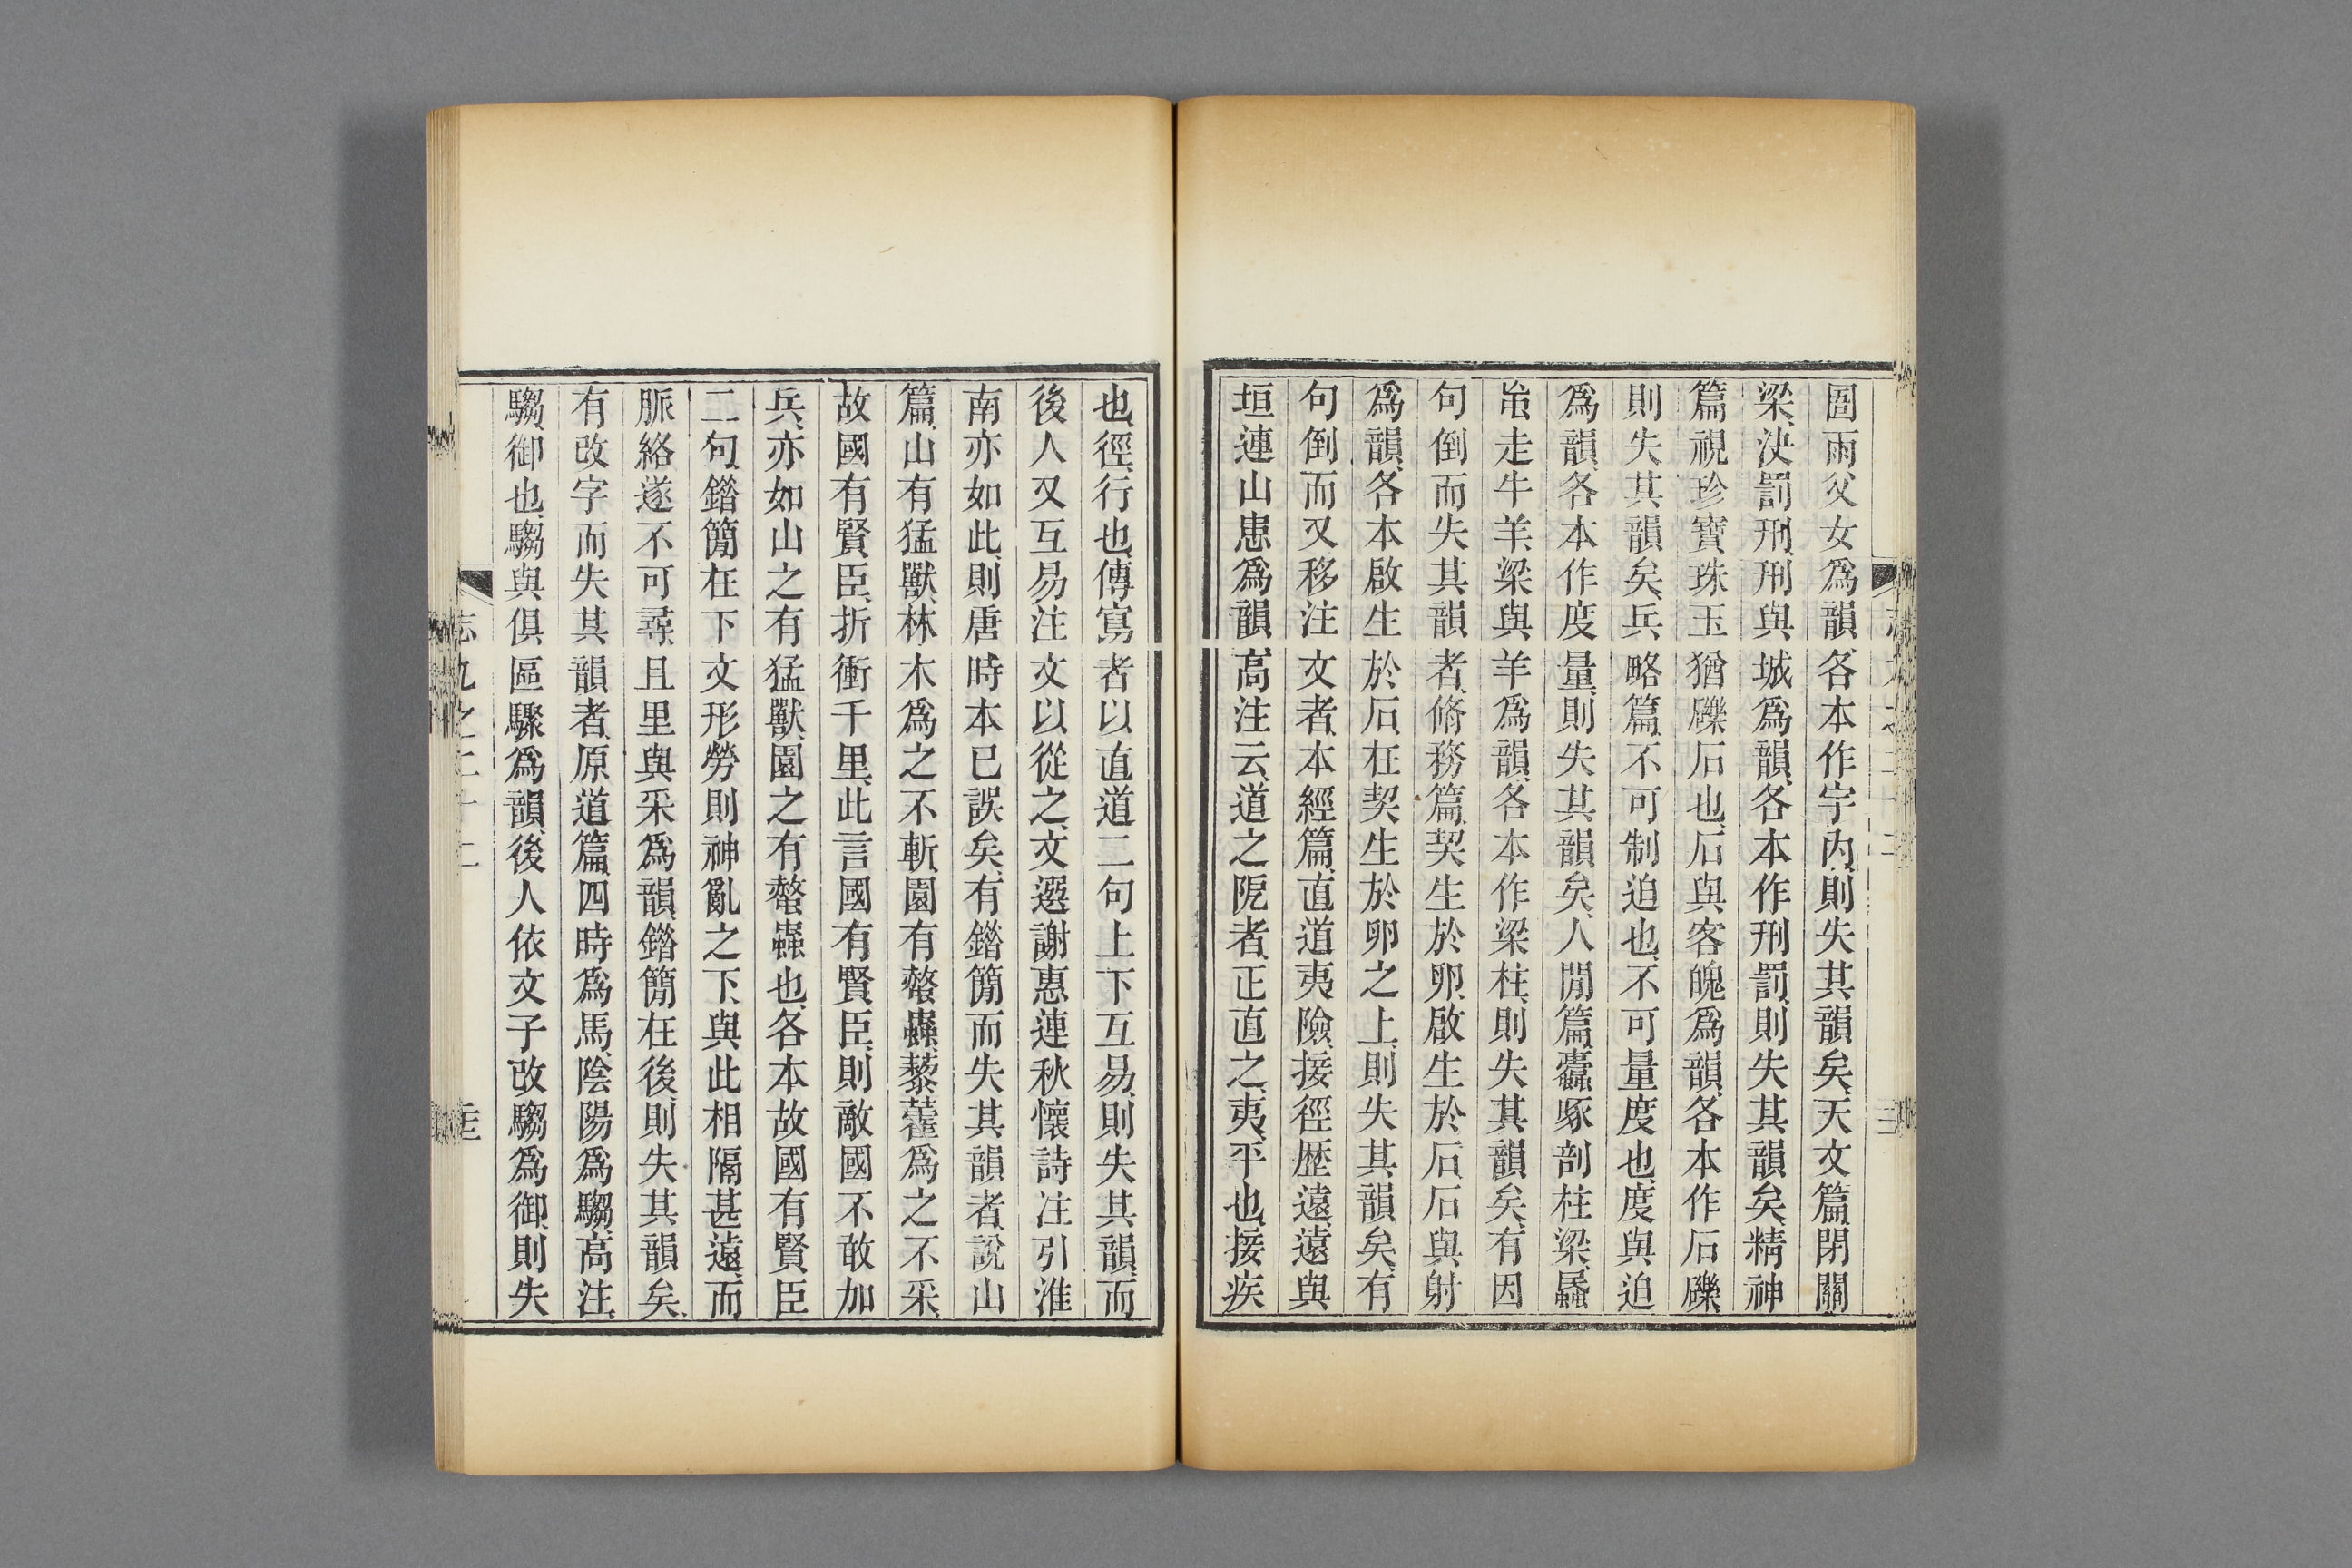 圄雨父女爲韻各本作宇内則失其韻矣天文篇閉關
梁決罰刑刑與城爲韻各本作刑罰則失其韻矣精神
篇視珍寶珠玉猶礫石也石與客魄爲韻各本作石礫
則失其韻矣兵略篇不可制迫也不可量度也度與迫
爲韻各本作度量則失其韻矣人閒篇蠹啄剖柱梁蟁
䖟走牛羊梁與羊爲韻各本作梁柱則失其韻矣有因
句倒而失其韻者脩務篇契生於卵啟生於石石與射
爲韻各本啟生於石在契生於卵之上則失其韻矣有
句倒而又移注文者本經篇直道夷險接徑歴遠遠與
垣連山患爲韻高注云道之阨者正直之夷平也接疾
也徑行也傳寫者以直道二句上下互易則失其韻而
後人又互易注文以從之文選謝惠連秋懷詩注引淮
南亦如此則唐時本已誤矣有錯簡而失其韻者說山
篇山有猛獸林木爲之不斬園有螫蟲藜藿爲之不采
故國有賢臣折衝千里此言國有賢臣則敵國不敢加
兵亦如山之有猛獸園之有螫蟲也各本故國有賢臣
二句錯簡在下文形勞則神亂之下與此相隔甚遠而
脈絡遂不可尋且里與采爲韻錯簡在後則失其韻矣
有改字而失其韻者原道篇四時爲馬陰陽爲騶高注
騶御也騶與俱區驟爲韻後人依文子改騶爲御則失
志九之二十二